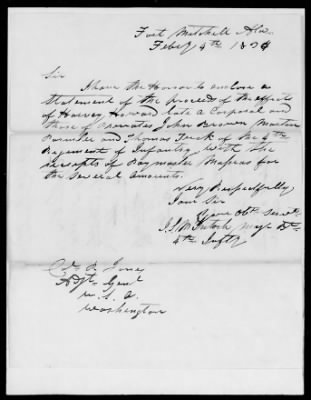 Fort Mitchell Ala.
Feby 4th 183
Sir
I have the Honor to enclose a
Statement of the proceeds of the effects
of Harvey Howard late a Corporal and
those of Privates John Brown Martin
Parmeler and Thomas Tuck of the 4th
Regiment of Infantry with the
receipts of Paymaster Mapes for
the Several amounts.
Very Respectfully
I am Sir
Your Obt Servt
J. S. McIntosh Maj Bt
4th Infty
Col R. Jones
Adjt Genl
U. S. A.
Washington